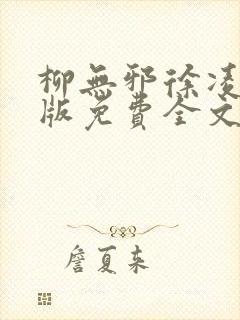 柳無邪徐凌
版免費全文
詹夏来